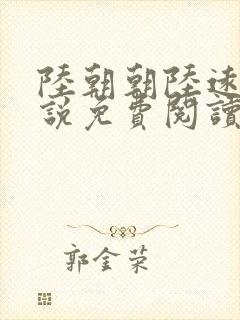 陸朝朝陸遠
說免費閱讀
郭金荣